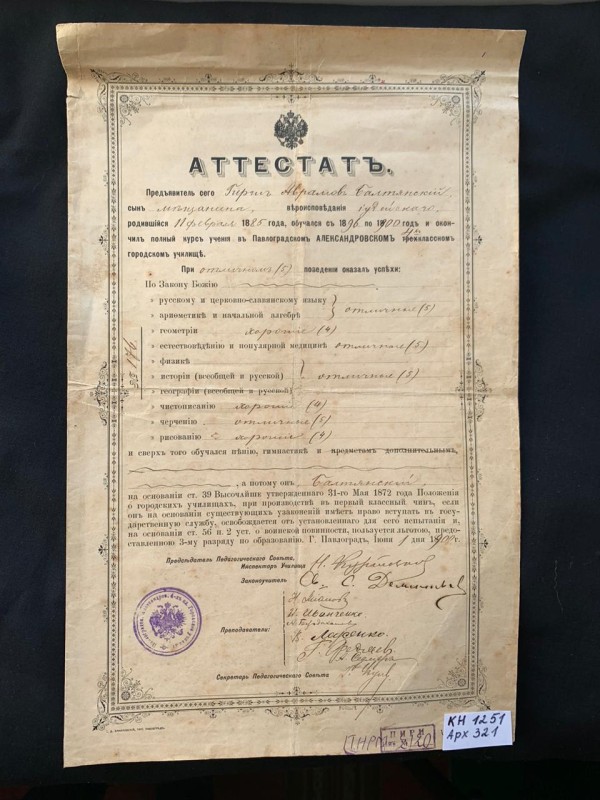 АТТЕСТАТЪ.
Предъявитель сего Гирш Аврамов Балтянский,
сынъ мѣщанина, вѣроисповѣданія іудейскаго,
родившійся 11 февраля 1885 года, обучался съ 1896 по 1900 годъ и окон-
чилъ полный курсъ ученія въ Павлоградскомъ АЛЕКСАНДРОВСКОМЪ классномъ
городскомъ училищѣ.
При отличномъ (5) поведеніи оказалъ успѣхи:
По Закону Божію
» русскому и церковно-славянскому языку
» ариѳметикѣ и начальной алгебрѣ } отличные (5)
» геометріи хорошіе (4)
» естествовѣдѣнію и популярной медицинѣ отличные (5)
» физикѣ
» исторіи (всеобщей и русской) отличные (5)
» географіи (всеобщей и русской)
» чистописанію хорошіе (4)
» черченію отличные (5)
» рисованію хорошіе (4)
и сверхъ того обучался пѣнію, гимнастикѣ и предметамъ дополнительнымъ,
, а потому онъ Балтянскій,
на основаніи ст. 39 Высочайше утвержденнаго 31-го Мая 1872 года Положенія
о городскихъ училищахъ, при производствѣ въ первый классный чинъ, если
онъ на основаніи существующихъ узаконеній имѣетъ право вступать въ го-
дарственную службу, освобождается отъ установленнаго для сего испытанія и,
на основаніи ст. 56 п. 2 уст. о воинской повинности, пользуется льготою, предо-
ставленною 3-му разряду по образованію. Г. Павлоградъ, Іюня 1 дня 1900 г.
№ 176
Предсѣдатель Педагогическаго Совѣта,
Инспекторъ Училища
Законоучитель Св. С.
Преподаватели:
И. Иванченко
Секретарь Педагогическаго Совѣта
КН 1251
Арх 321